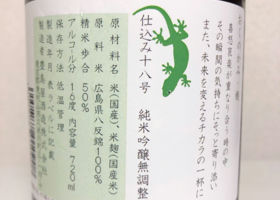 喜怒哀楽が重なり合う時の中
その瞬間の気持ちにそっと寄り添い
また、未来を変えるチカラの一杯に
仕込み十八号　純米吟醸無調整
原材料名　米(国産)、米麹(国産米)
原料米　広島県八反錦100%
精米歩合　50%
アルコール分　16度　内容量　720ml
保存方法　低温管理
製造年月　表ラベルに記載